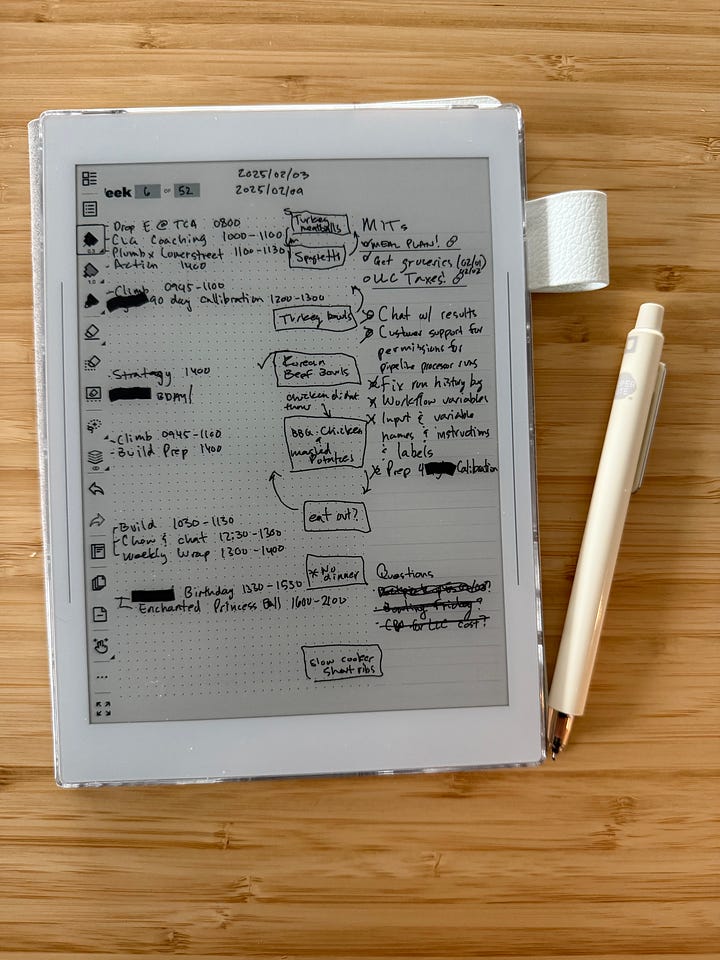 eek 6 OF 52
2025/02/03
2025/02/09
Drop E @ TCA 0800
CLG Coaching 1000-1100
Plumb x Lowerstreet 1100-1130
Action 1400
Climb 0945-1100
90 day Callibration 1200-1300
Strategy 1400
BDAY!
Climb 0945-1100
Build Prep 1400
Build 1030-1130
Chow & chat 12:30-1300
Weekly Wrap 1300-1400
Birthday 1330-1530
Enchanted Princess Ball 1600-2100
Turkey
meatballs
Spaghetti
Turkey bowls
Korean
Beef Bowls
chicken didnt
thaw
BBQ Chicken
&
mashed
Potatoes
eat out?
* No
dinner
slow cooker
short ribs
MITs
MEAL PLAN!
Get groceries (02/01)
LLC Taxes!
Chat w/ results
Customer support for
permissions for
pipeline processor runs
Fix run history bug
Workflow variables
Input & variable
names & instructions
& labels
Prep 4 Calibration
Questions
Bowling Friday?
CPA for LLC cost?